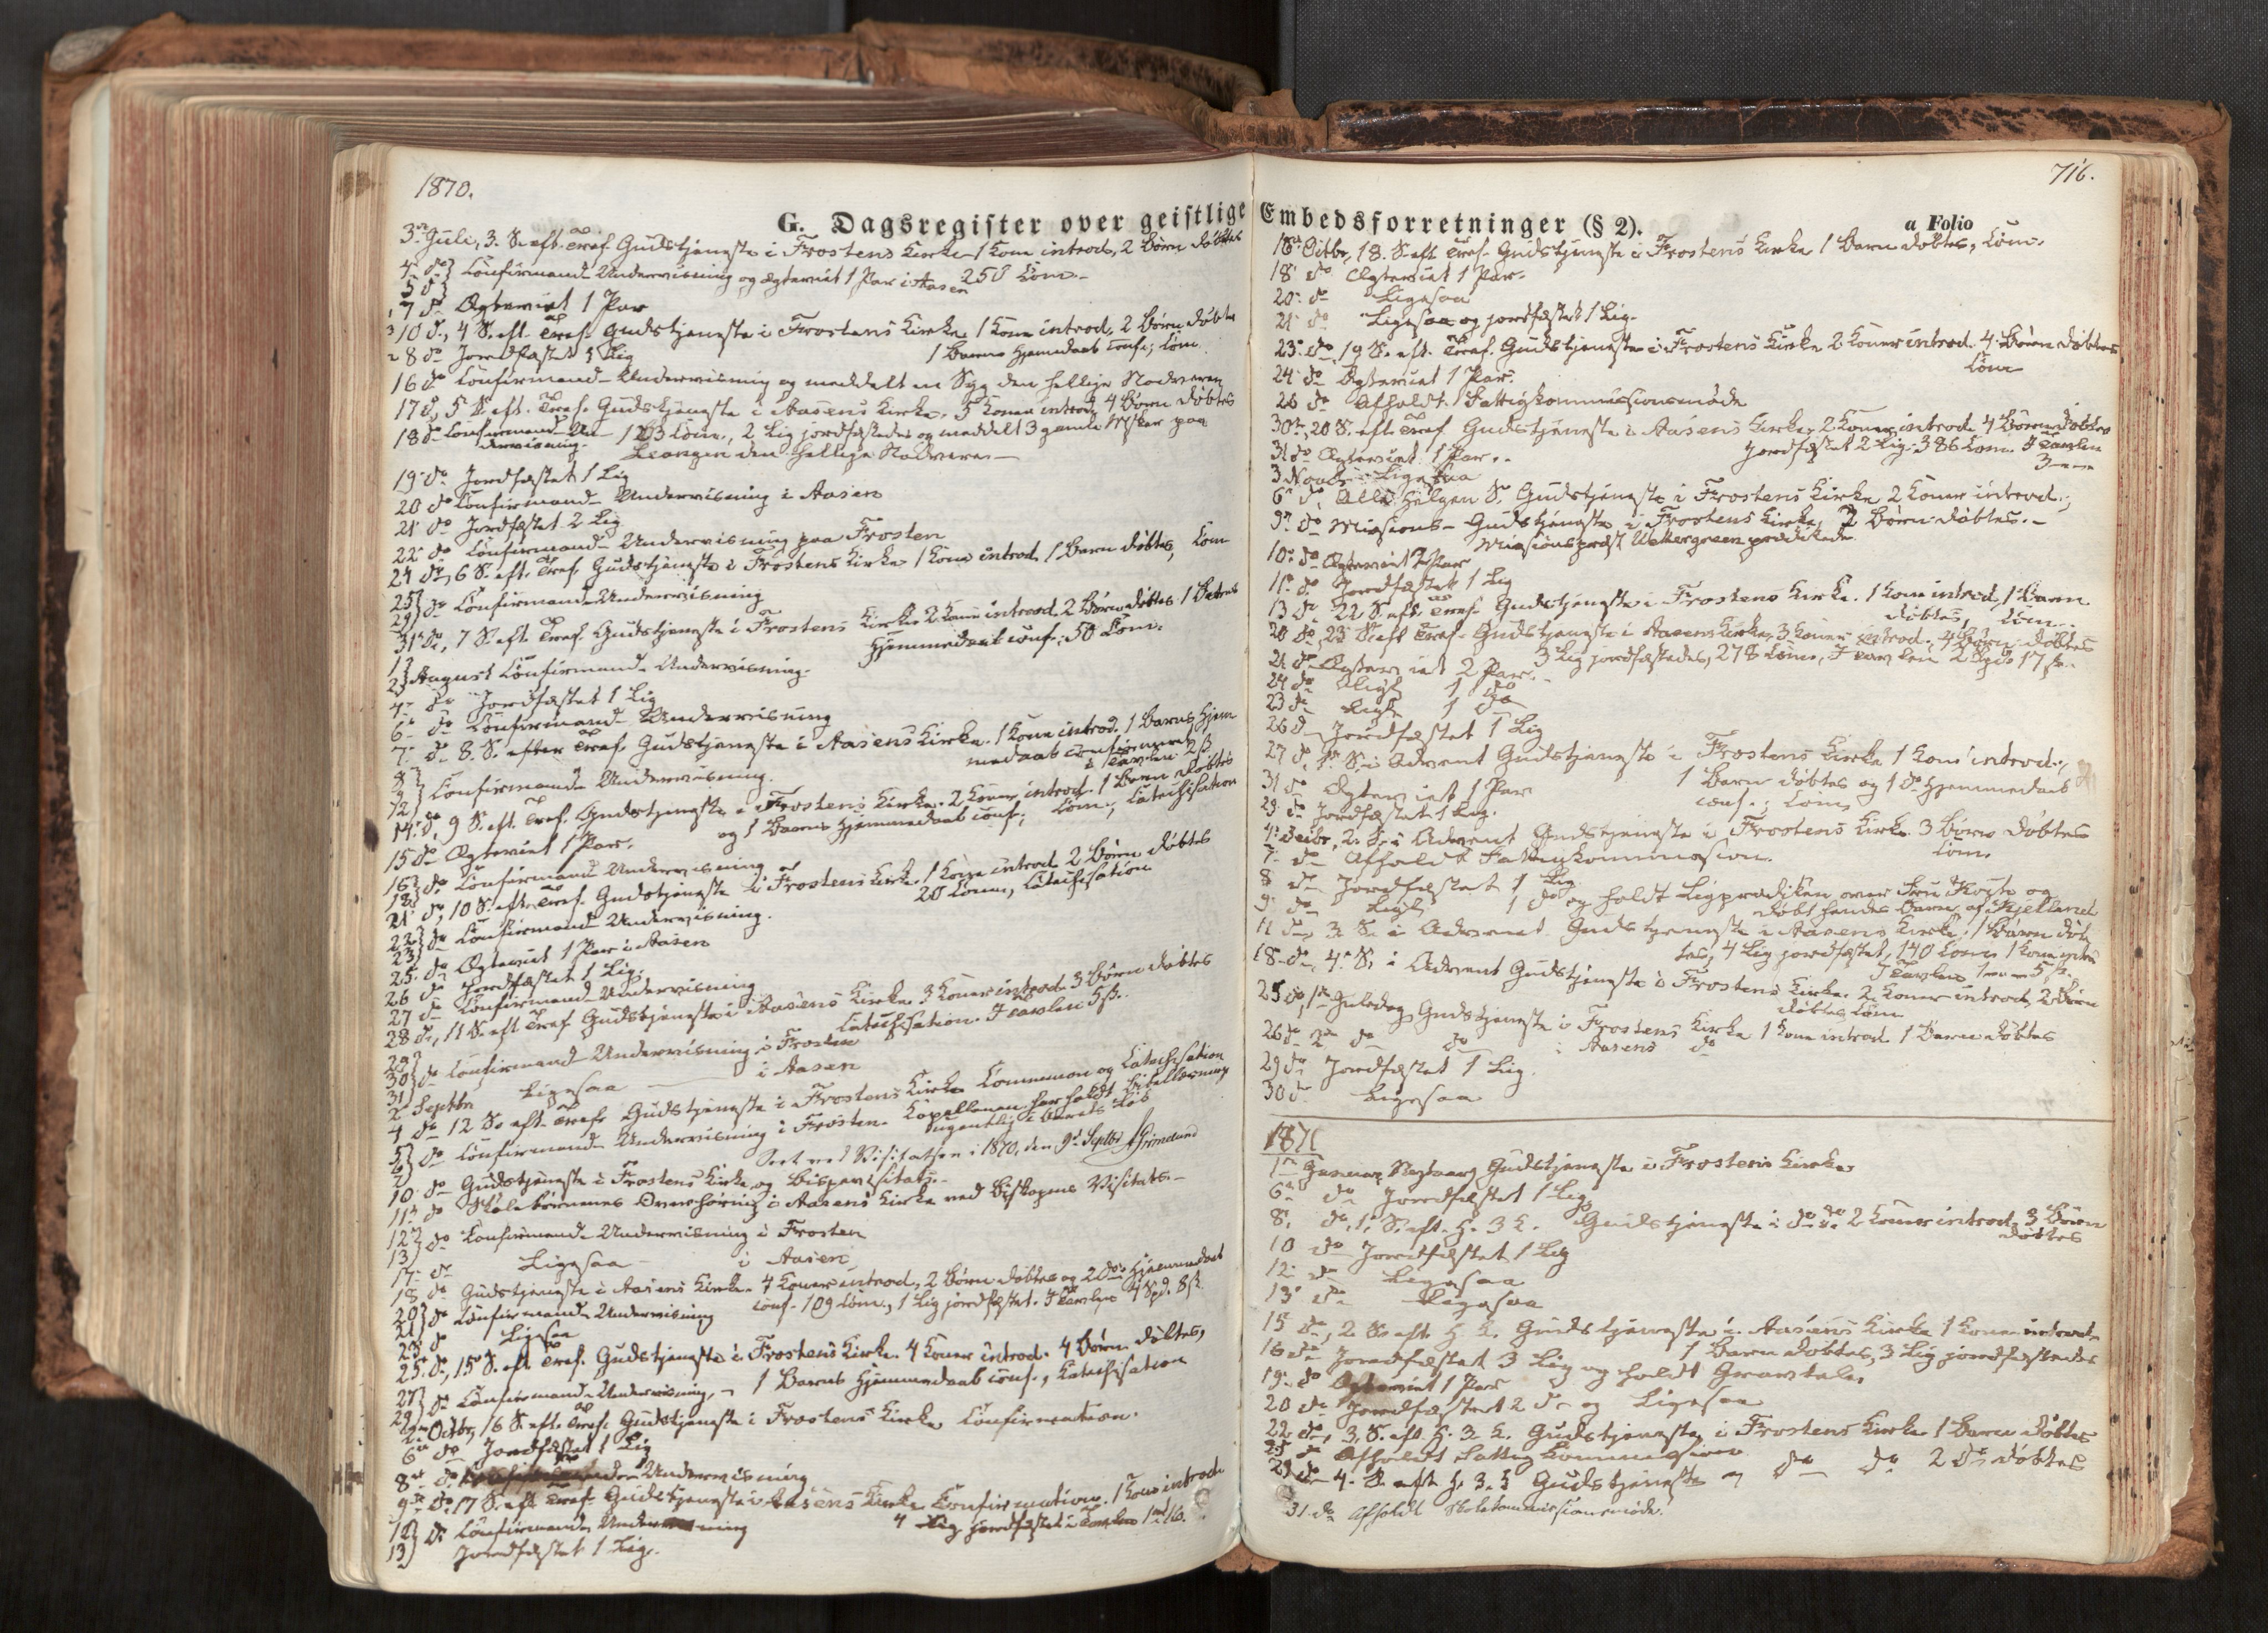 1870.
G. Dagsregister over geistlige
3die Juli, 3. S. eft. Tref. Gudstjeneste i Frostens Kirke 1 Kone introd., 2 Børn døbtes
4 do } Confirmand-Undervisning og Ægteviet 1 Par i Aasen 250 Com.
5 do }
7 do Ægteviet 1 Par
10 do, 4 S. eft. Tref. Gudstjeneste i Frostens Kirke, 1 Kone introd., 2 Børn døbtes
8 do Jordfæstet 1 Lig 1 Barns Hjemmedaab conf.; Com.
16 do Confirmand-Undervisning og meddelt en Syg den hellige Nadveren
17 do, 5 S. eft. Tref. Gudstjeneste i Aasens Kirke, 5 Koner introd. 4 Børn døbtes
18 do Confirmand-Un- 123 Com., 2 Lig jordfæstedes og meddelt 3 gamle paa
dervisning. Leangen den hellige Nadvere
19 do Jordfæstet 1 Lig
20 do Confirmand-Undervisning i Aasen
21 do Jordfæstet 2 Lig
22 do Confirmand-Undervisning paa Frosten
24 do, 6 S. eft. Tref. Gudstjeneste i Frostens Kirke 1 Kone introd. 1 Barn døbtes, Com
25 } do Confirmand-Undervisning
29 }
31 do, 7 S. eft. Tref. Gudstjeneste i Frostens Kirke 2 Koner introd. 2 Børn døbtes 1 Barns
Hjemmedaab conf.; 50 Com.
1 }
2 } August Confirmand-Undervisning.
4 do Jordfæstet 1 Lig
6 do Confirmand-Undervisning
7 do 8. S. efter Tref. Gudstjeneste i Aasens Kirke. 1 Kone introd. 1 Barns Hjem
medaab confirmeret
i Tavlen 2 ß
8 }
9 } Confirmand-Undervisning.
12 }
14 do, 9 S. eft. Tref. Gudstjeneste i Frostens Kirke. 2 Koner introd. 1 Barn døbtes
og 1 Barns Hjemmedaab conf; Com.; Catechisation
15 do Ægteviet 1 Par.
16 } do Confirmand-Undervisning
18 }
21 do, 10 S. eft. Tref. Gudstjeneste i Frostens Kirke. 1 Kone introd 2 Børn døbtes
20 Comm, Catechisation
22 } do Confirmand-Undervisning.
23 }
25 do Ægteviet 1 Par i Aasen
26 do Jordfæstet 1 Lig.
27 do Confirmand-Undervisning
28 do, 11 S. eft Tref Gudstjeneste i Aasens Kirke 3 Koner introd. 3 Børn døbtes
Catechisation. I Tavlen 5 ß.
29 }
30 } do Confirmand-Undervisning i Frosten
31 }
2 Septbr Ligesaa i Aasen
4 do 12 S. eft. Tref. Gudstjeneste i Frostens Kirke Communion og Catechisation
5 }
6 } do Confirmand-Undervisning i Frosten. Kapellanen har holdt Bibellæsning
7 } ugentlig i Aarets Løb
Seet ved Visitatsen i 1870, den 9de Septbr Grimelund
10 do Gudstjeneste i Frostens Kirke og Bispevisitats.
11 do Skolebørnenes Overhøring i Aasens Kirke ved Biskopens Visitats.
12 } do Confirmand-Undervisning i Frosten
13 }
17 do Ligesaa i Aasen
18 do Gudstjeneste i Aasens Kirke. 4 Koner introd., 2 Børn døbtes og 2 do's Hjemmedaab
conf. 109 Com., 1 Lig jordfæstet. I Tavlen 4 Spd. 8 ß
20 } do Confirmand-Undervisning
21 }
23 do Ligesaa
25 do, 15 S. eft Tref. Gudstjeneste i Frostens Kirke. 4 Koner introd. 4 Børn døbtes,
1 Barns Hjemmedaab conf., Katechisation
27 } do Confirmand-Undervisning,
29 }
2 Octbr, 16 S. eft. Tref. Gudstjeneste i Frostens Kirke Confirmation.
6 do Jordfæstet 1 Lig
8 do Undervisning
9 do, 17 S. eft Tref. Gudstjeneste i Aasens Kirke Confirmation. 1 Kone introd.
4 Lig jordfæstet i Tavlen
12 } do Confirmand-Undervisning
13 } Jordfæstet 1 Lig.
716.
Embedsforretninger (§ 2).
a Folio
16 Octbr, 18. S. eft Tref. Gudstjeneste i Frostens Kirke 1 Barn døbtes, Com.
18 do Ægteviet 1 Par.
20 do Ligesaa
21 do Ligesaa og jordfæstet 1 Lig.
23 do, 19 S. eft. Tref. Gudstjeneste i Frostens Kirke 2 Koner introd. 4 Børn døbtes
Com
24 do Ægteviet 1 Par.
26 do Afholdt Fattigkommissionsmøde
30te, 20 S. eft. Tref Gudstjeneste i Aasens Kirke, 2 Koner introd. 4 Børn døbtes
jordfæstet 2 Lig. 386 Com. I Tavlen
31 do Ægteviet 1 Par.
3 Novbr Ligesaa
6 do, Alle Helgen S. Gudstjeneste i Frostens Kirke 2 Koner introd.;
9 do Missions-Gudstjeneste i Frostens Kirke, 2 Børn døbtes.
Missionspræst Wettergreen prædikede
10 do Ægteviet 2 Par
11 do Jordfæstet 1 Lig
13 do 22 S. eft. Tref. Gudstjeneste i Frostens Kirke. 1 Kone introd., 1 Barn
døbtes, Com.
20 do, 23 S. eft Tref. Gudstjeneste i Aasens Kirke, 3 Koner introd., 4 Børn døbtes
3 Lig jordfæstedes, 278 Com., I Tavlen 2 Spd 17 ß.
21 do Ægteviet 2 Par.
24 do Ligl 1 do
23 do Ligl 1 do
26 do Jordfæstet 1 Lig
27 do, 1 S. i Advent Gudstjeneste i Frostens Kirke 1 Kone introd.,
1 Barn døbtes og 1 do Hjemmedaab
conf.; Com,
31 do Ægteviet 1 Par
29 do Jordfæstet 1 Lig.
4 Decbr, 2. S. i Advent Gudstjeneste i Frostens Kirke. 3 Børn døbtes
Com.
7 do Afholdt Fattigkommission.
8 do Jordfæstet 1 Lig
9 do Ligl 1 do og holdt Ligprædiken over Fru og
døbt hendes Barn af
11 do, 3. S. i Advent Gudstjeneste i Aasens Kirke, 1 Barn døb
tes, 4 Lig jordfæstet, 140 Com. 1 Kone introd
I Tavlen
18 do, 4 S. i Advent Gudstjeneste i Frostens Kirke. 2 Koner introd, 2 Børn
døbtes Com
25 do, 1ste Juledag Gudstjeneste i Frostens Kirke 1 Kone introd. 1 Barn døbtes
26 do 2den do do i Aasens do
29 do Jordfæstet 1 Lig.
30 do Ligesaa
1871
1ste Januar Nytaar Gudstjeneste i Frostens Kirke
6 do Jordfæstet 1 Lig
8 do, 1 S. eft. H. 3 K. Gudstjeneste i do do 2 Koner introd. 3 Børn
døbtes
10 do Jordfæstet 1 Lig
12 do Ligesaa
13 do Ligesaa
15 do, 2 S. eft. H. K. Gudstjeneste i Aasens Kirke 1 Kone introd.
1 Barn døbtes, 3 Lig jordfæstedes
16 do Jordfæstet 3 Lig og holdt Gravtale.
19 do Ægteviet 1 Par
20 do Jordfæstet 2 do og Ligesaa
22 do, 3. S. eft. H. 3 K. Gudstjeneste i Frostens Kirke 1 Barn døbtes
25 do Afholdt Fattigkommission
29 do 4. S. eft H. 3. K Gudstjeneste do do 2 do døbtes
31 do Afholdt Skolekommissionsmøde.